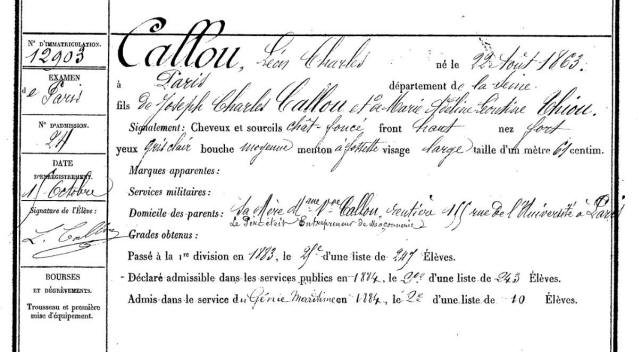 N° D'IMMATRICULATION.
12903
EXAMEN
de Paris
N° D'ADMISSION.
DATE
D'ENREGISTREMENT
15 Octobre
Signature de l'Élève:
L. Callou
BOURSES
ET DÉGRÈVEMENTS.
Trousseau et première
mise d'équipement.
Callou, Léon Charles né le 22 Août 1863.
à Paris département de la Seine
fils de Joseph Charles Callou et de Marie Thiou.
Signalement: Cheveux et sourcils chât-foncé front haut nez fort
yeux gris clair bouche moyenne menton à fossette visage large taille d'un mètre 69 centim.
Marques apparentes:
Services militaires:
Domicile des parents: Sa Mère Mme Vve Callou, rentière 115 rue de l'Université à Paris
Le Père était Entrepreneur de Maçonnerie
Grades obtenus:
Passé à la 1re division en 1883, le d'une liste de 247 Élèves.
Déclaré admissible dans les services publics en 1884, le d'une liste de 243 Élèves.
Admis dans le service du Génie Maritime en 1884, le 2e d'une liste de 10 Élèves.